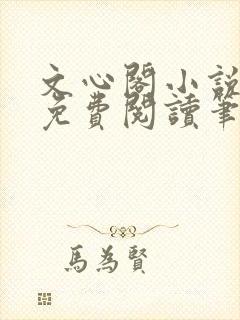 文心閣小說
免費閱讀筆
馬為賢